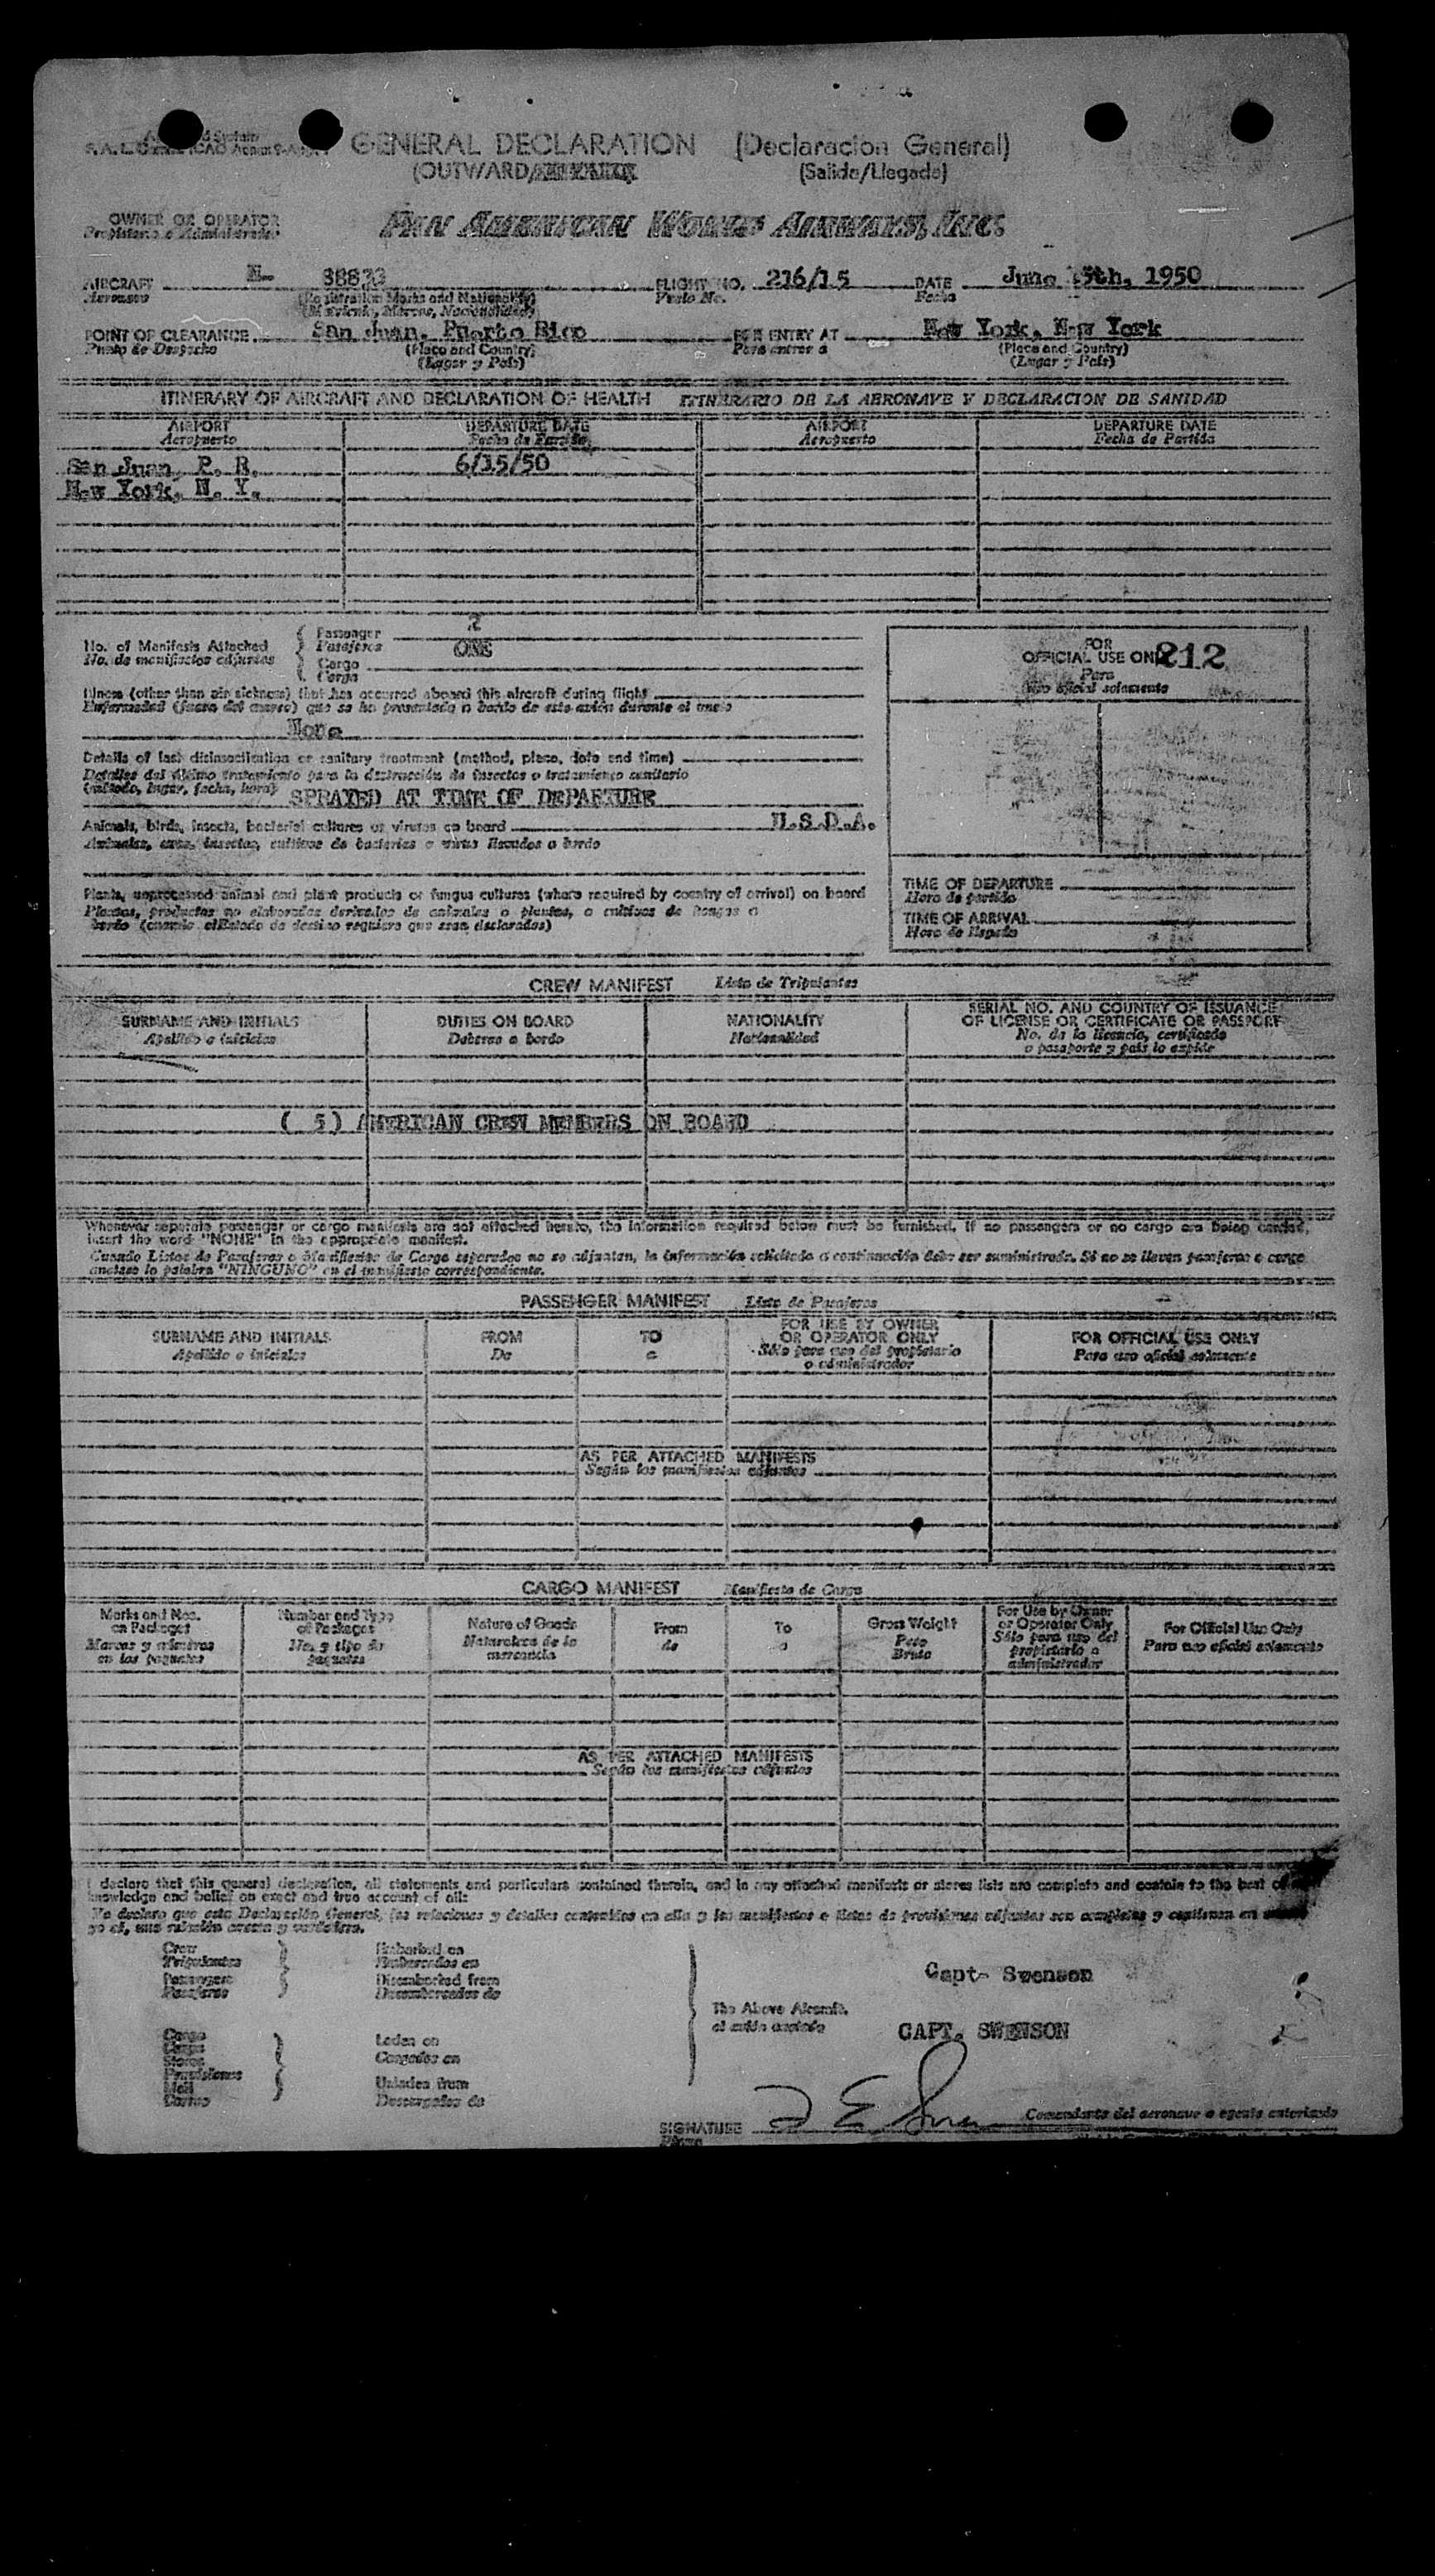 GENERAL DECLARATION (Declaracion General)
(OUTWARD/ (Salida/Llegada)
OWNER OR OPERATOR PAN AMERICAN WORLD AIRWAYS, INC.
Propietario o Administrador
AIRCRAFT N- FLIGHT NO. 216/15 DATE June 15th, 1950
Aeronave (Registration Marks and Nationality) Vuelo No. Fecha
(Matricula, Marcas, Nacionalidad)
POINT OF CLEARANCE San Juan, Puerto Rico FOR ENTRY AT New York, New York
Punto de Despacho (Place and Country) Para entrar a (Place and Country)
(Lugar y País) (Lugar y País)
ITINERARY OF AIRCRAFT AND DECLARATION OF HEALTH ITINERARIO DE LA AERONAVE Y DECLARACION DE SANIDAD
AIRPORT DEPARTURE DATE AIRPORT DEPARTURE DATE
Aeropuerto Fecha de Partida Aeropuerto Fecha de Partida
San Juan, P. R. 6/15/50
New York, N. Y.
2
No. of Manifests Attached Passenger
No. de manifiestos adjuntos Pasajeros ONE
Cargo
Carga
Illness (other than air sickness) that has occurred aboard this aircraft during flight
Enfermedad (fuera del mareo) que se ha presentado a bordo de este avión durante el vuelo
None
Details of last disinsectization or sanitary treatment (method, place, date and time)
Detalles del último tratamiento para la destrucción de insectos o tratamiento sanitario
(método, lugar, fecha, hora) SPRAYED AT TIME OF DEPARTURE
Animals, birds, insects, bacterial cultures or viruses on board U.S.D.A.
Animales, aves, insectos, cultivos de bacterias o virus llevados a bordo
Plants, unprocessed animal and plant products or fungus cultures (where required by country of arrival) on board
Plantas, productos no elaborados derivados de animales o plantas, o cultivos de hongos a
bordo (cuando el Estado de destino requiera que sean declarados)
FOR
OFFICIAL USE ONLY 212
Para
uso oficial solamente
TIME OF DEPARTURE
Hora de partida
TIME OF ARRIVAL
Hora de llegada
CREW MANIFEST Lista de Tripulantes
SURNAME AND INITIALS DUTIES ON BOARD NATIONALITY SERIAL NO. AND COUNTRY OF ISSUANCE
OF LICENSE OR CERTIFICATE OR PASSPORT
Apellido e iniciales Deberes a bordo Nacionalidad No. de la licencia, certificado
o pasaporte y país lo expide
( 5) AMERICAN CREW MEMBERS ON BOARD
Whenever separate passenger or cargo manifests are not attached hereto, the information required below must be furnished. If no passengers or no cargo are being carried,
insert the word "NONE" in the appropriate manifest.
Cuando Listas de Pasajeros o Manifiestos de Carga separados no se adjuntan, la información solicitada a continuación debe ser suministrada. Si no se llevan pasajeros o carga
anótese la palabra "NINGUNO" en el manifiesto correspondiente.
PASSENGER MANIFEST Lista de Pasajeros
SURNAME AND INITIALS FROM TO FOR USE BY OWNER
OR OPERATOR ONLY FOR OFFICIAL USE ONLY
Apellido e iniciales De a Sólo para uso del propietario
o administrador Para uso oficial solamente
AS PER ATTACHED MANIFESTS
Según los manifiestos adjuntos
CARGO MANIFEST Manifiesto de Carga
Marks and Nos.
on Packages
Marcas y números
en los paquetes
Number and Type
of Packages
No. y tipo de
paquetes
Nature of Goods
Naturaleza de la
mercancía
From
de
To
a
Gross Weight
Peso
Bruto
For Use by Owner
or Operator Only
Sólo para uso del
propietario o
administrador
For Official Use Only
Para uso oficial solamente
AS PER ATTACHED MANIFESTS
Según los manifiestos adjuntos
I declare that this general declaration, all statements and particulars contained therein, and in any attached manifests or stores lists are complete and contain to the best of
knowledge and belief an exact and true account of all:
Yo declaro que esta Declaración General, las relaciones y detalles contenidos en ella y los manifiestos o listas de provisiones adjuntas son completos y contienen en
yo el, una relación exacta y verdadera.
Crew
Tripulantes
Passengers
Pasajeros
Embarked on
Embarcados en
Disembarked from
Desembarcados de
Cargo
Carga
Stores
Provisiones
Mail
Correo
Laden on
Cargados en
Unladen from
Descargados de
The Above Aircraft.
el avión anotado
Capt- Swenson
CAPT. SWENSON
SIGNATURE Comandante del aeronave o agente autorizado
Firma